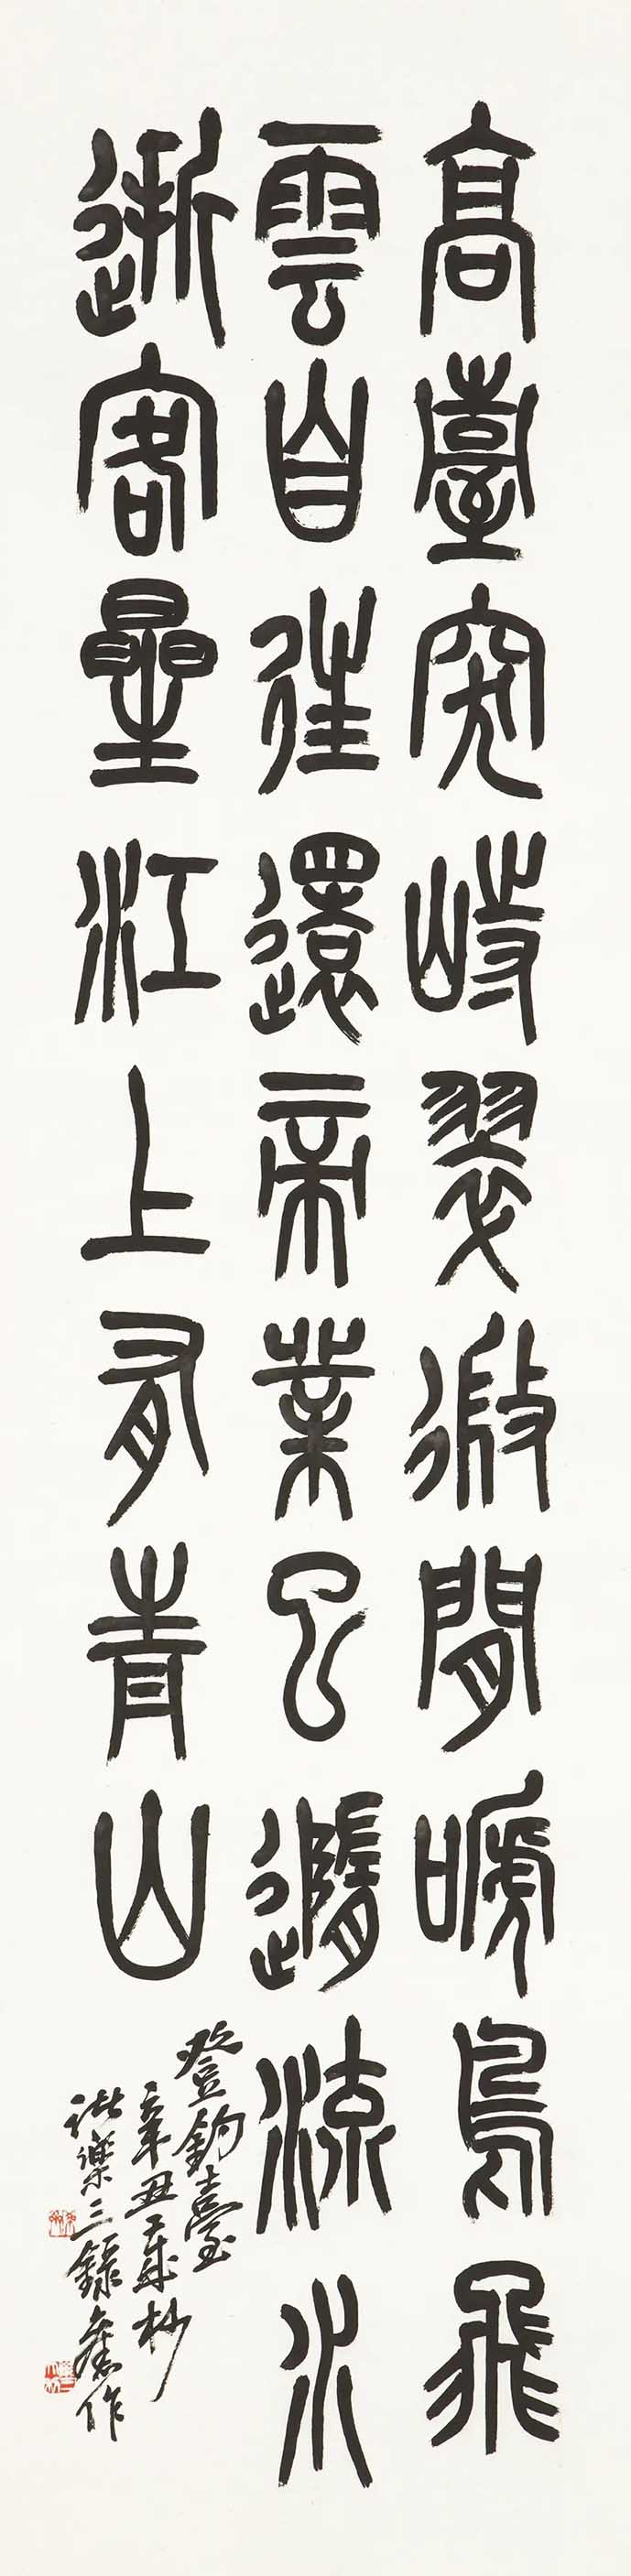 高臺突峙翠微間晚鳥飛
雲自往還帝業已隨流水
逝客星江上有青山
登釣臺
辛丑歲杪
諸樂三錄舊作